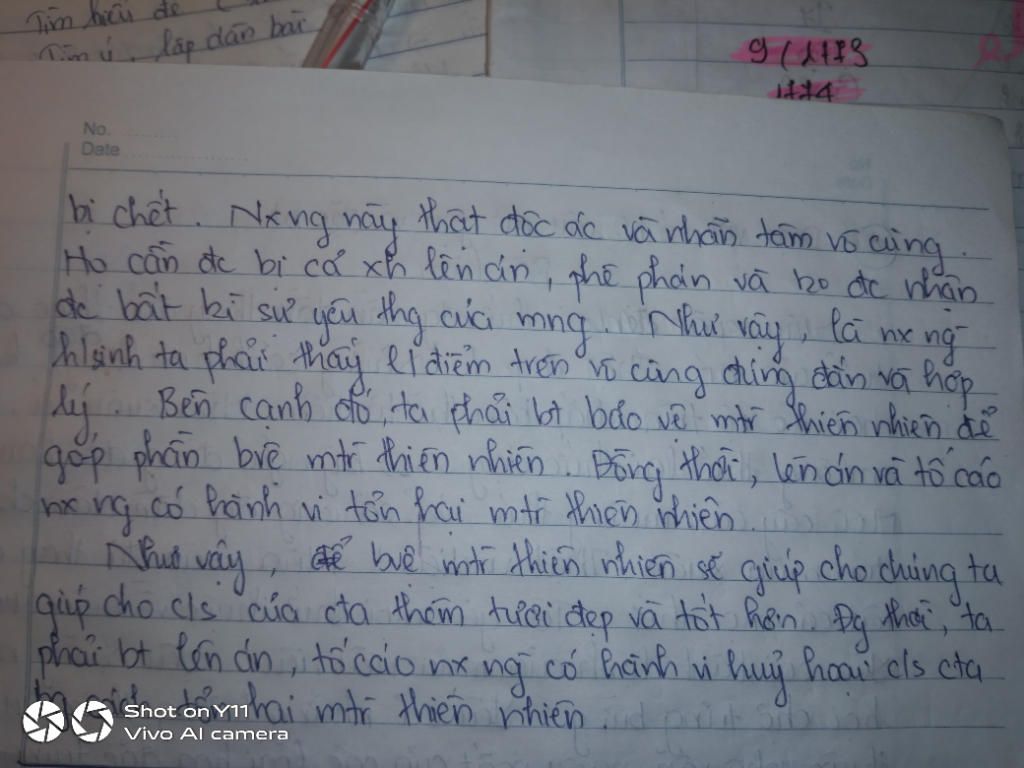 Tìm hiểu đề
Tìm ý, lập dàn bài
9 / 1773
1774
No.
Date
bị chết. Nxng này thật độc ác và nhẫn tâm vô cùng.
Họ cần đc bị cả xh lên án, phê phán và ko đc nhận
đc bất kì sự yêu thg của mng. Như vậy, là nx ng
h/sinh ta phải thấy q/điểm trên vô cùng đúng đắn và hợp
lý. Bên cạnh đó, ta phải bt bảo vệ mtr thiên nhiên để
góp phần bvệ mtr thiên nhiên. Đồng thời, lên án và tố cáo
nx ng có hành vi tổn hại mtr thiên nhiên.
Như vậy, để bvệ mtr thiên nhiên sẽ giúp cho chúng ta
giúp cho c/s của cta thêm tươi đẹp và tốt hơn. Đg thời, ta
phải bt lên án, tố cáo nx ng có hành vi huỷ hoại c/s cta
bg cách tổn hại mtr thiên nhiên.
Shot on Y11
Vivo AI camera